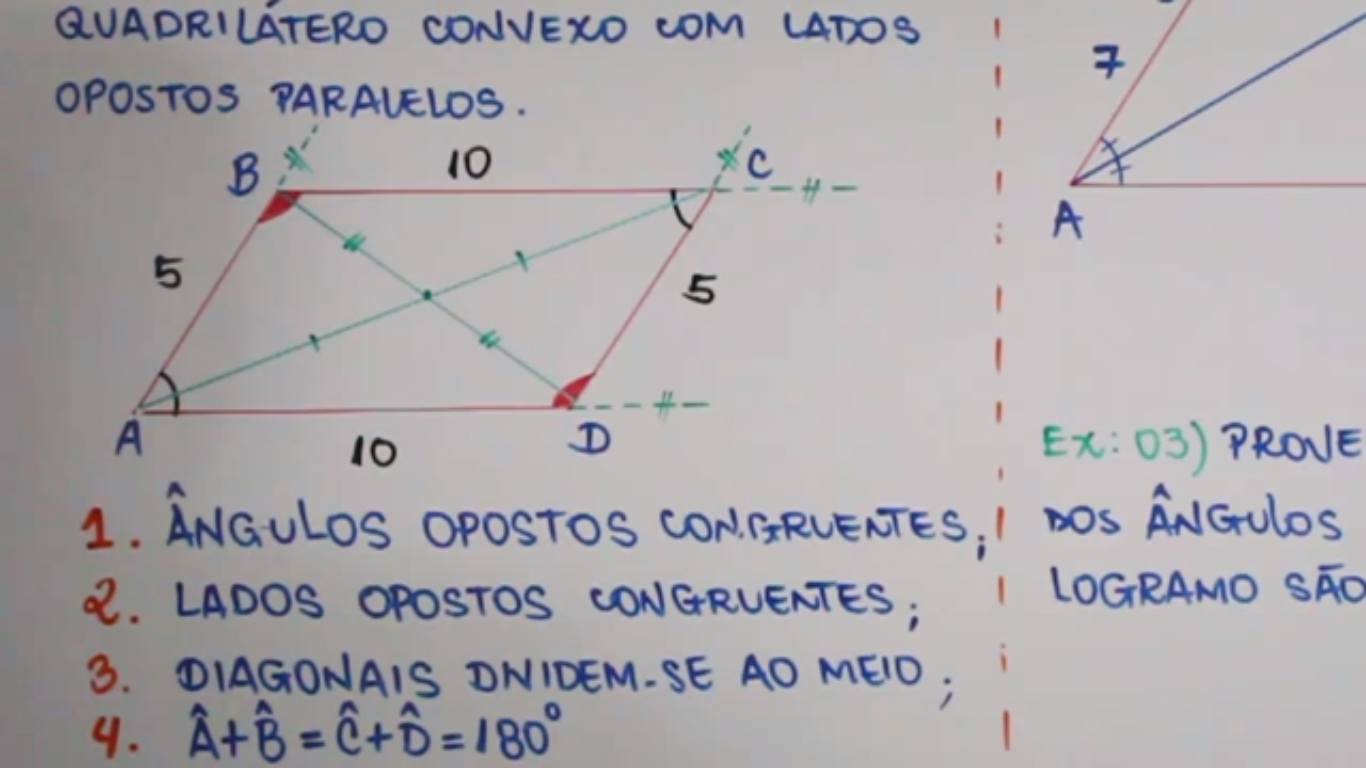 QUADRILÁTERO CONVEXO COM LADOS
OPOSTOS PARALELOS.
B 10 C
5 5
A 10 D
1. ÂNGULOS OPOSTOS CONGRUENTES;
2. LADOS OPOSTOS CONGRUENTES;
3. DIAGONAIS DIVIDEM-SE AO MEIO;
4. Â+B̂=Ĉ+D̂=180°
7
A
Ex: 03) PROVE
DOS ÂNGULOS
LOGRAMO SÃO